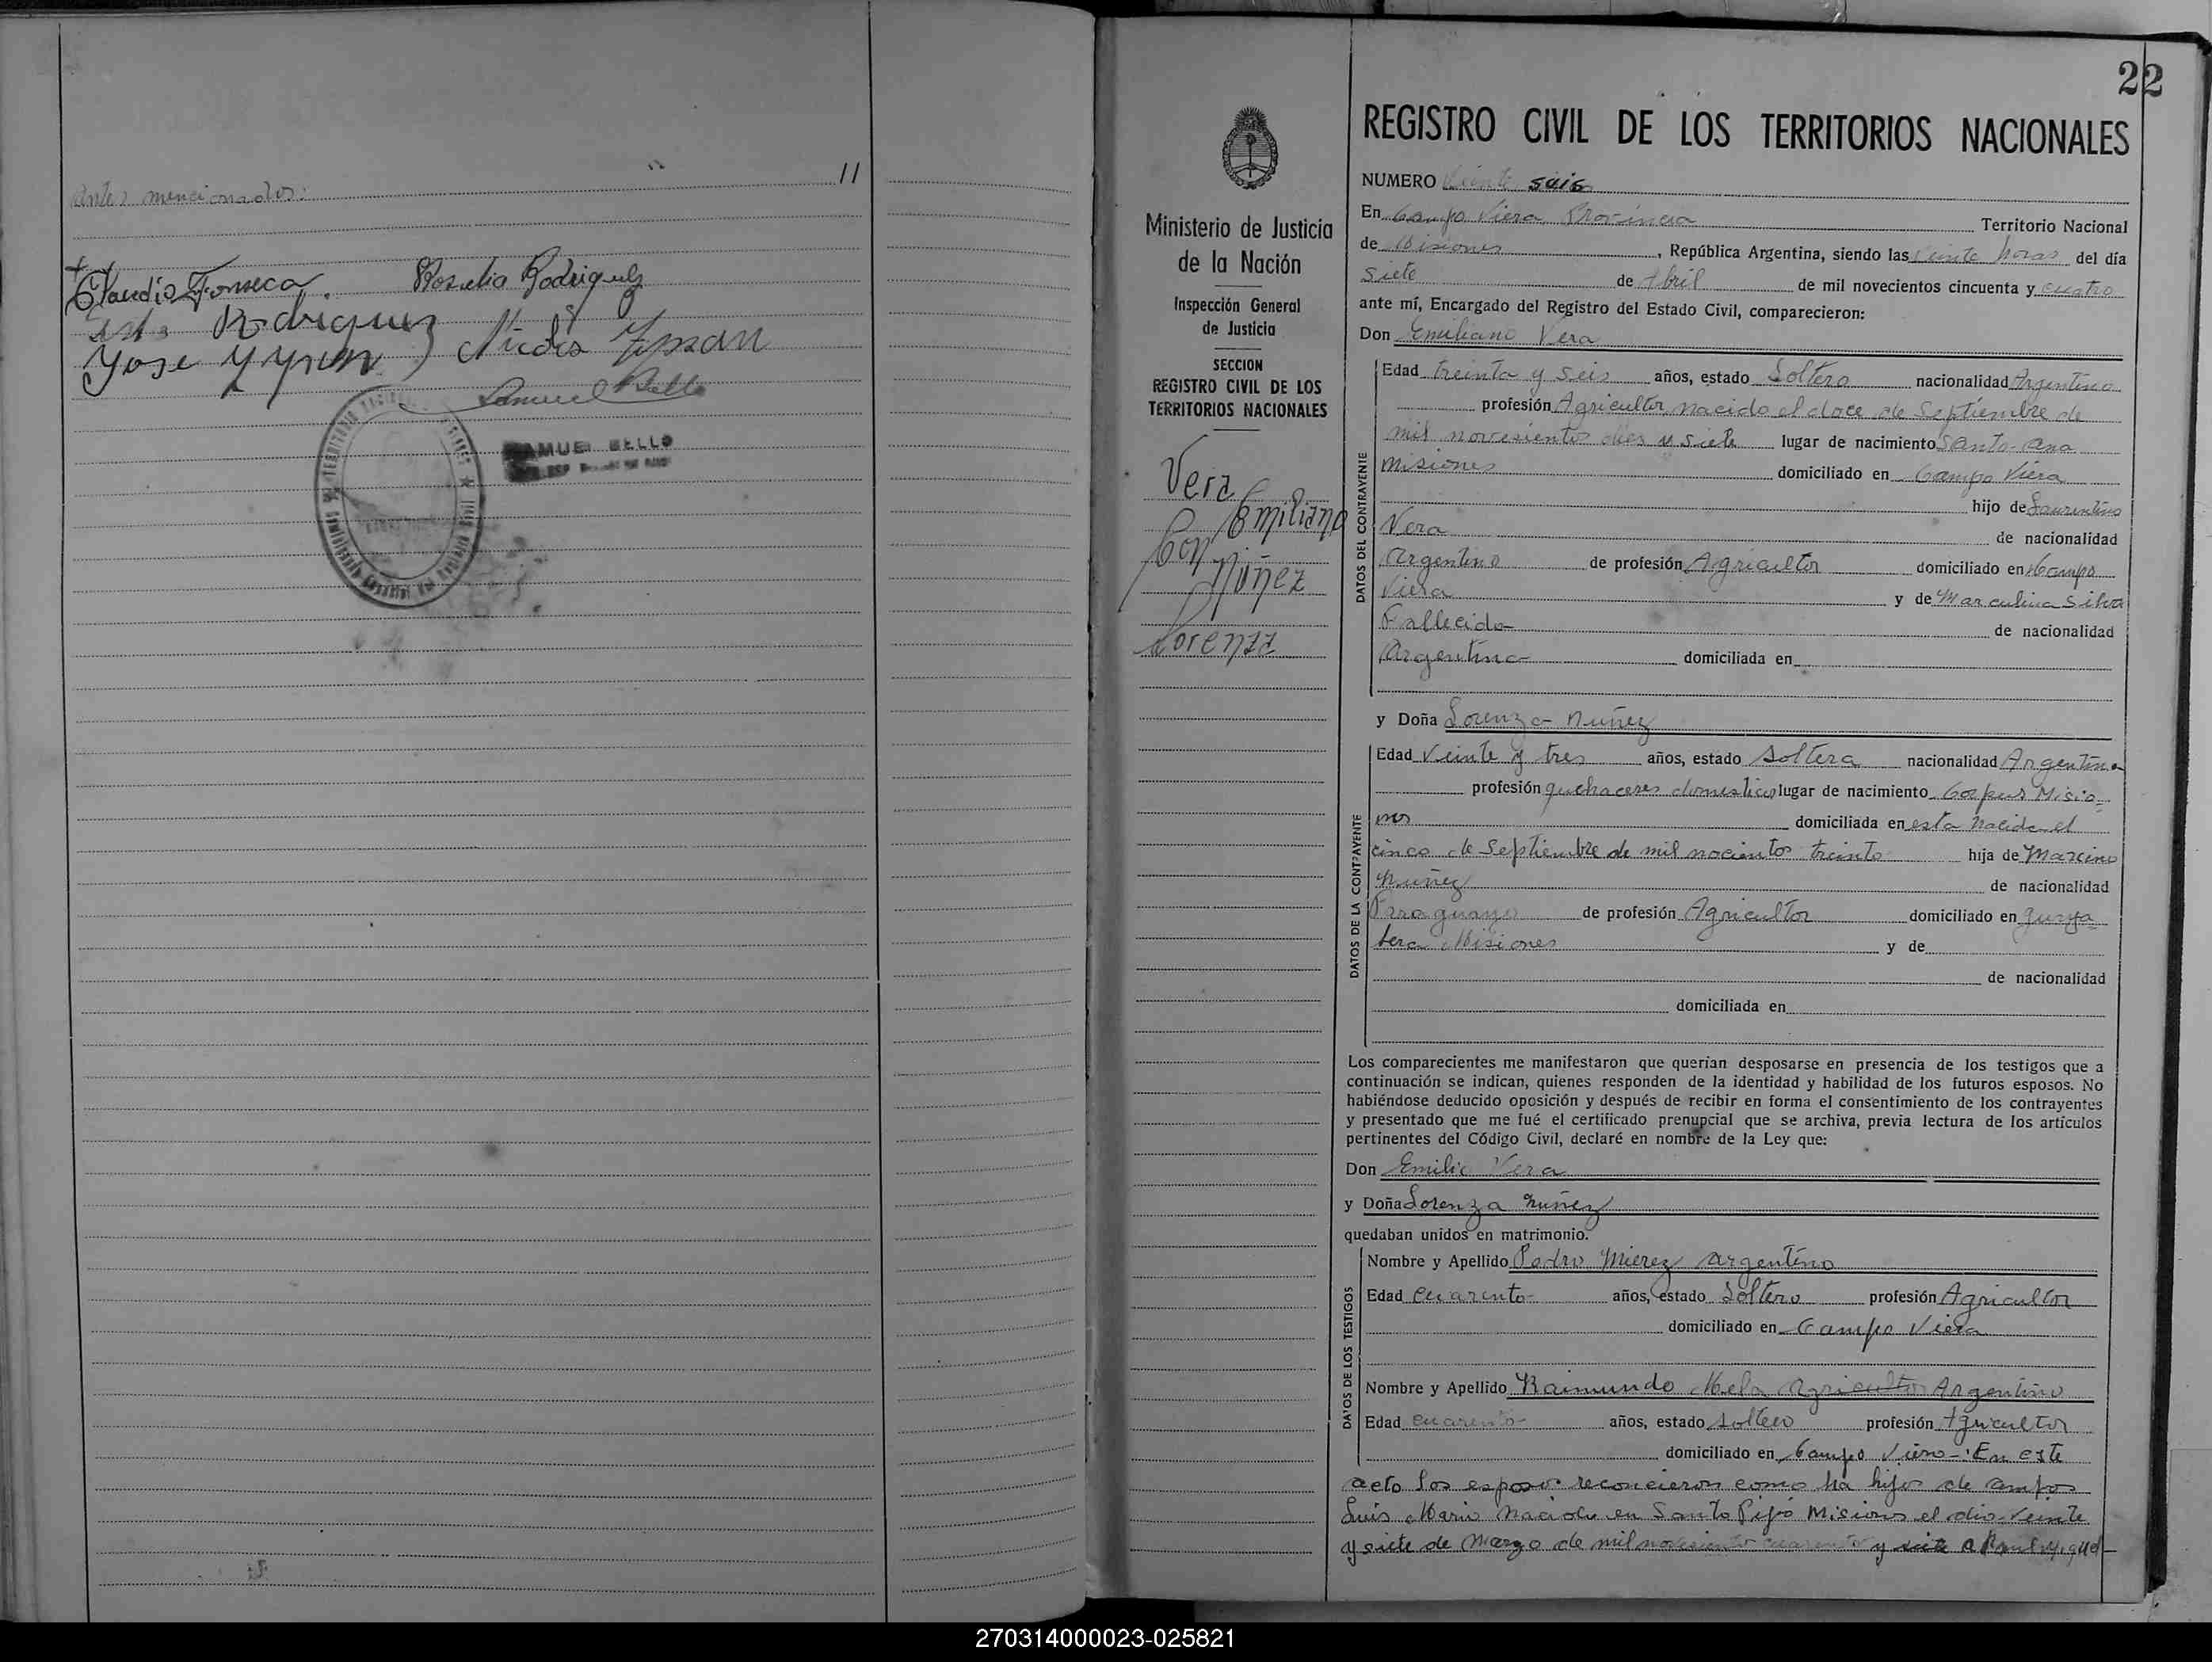 antes mencionados:
11
Claudio Fonseca Rosalia Rodriguez
Rodriguez
Jose Ypran
Samuel Bello
SAMUEL BELLO
22
REGISTRO CIVIL DE LOS TERRITORIOS NACIONALES
Ministerio de Justicia
de la Nación
Inspección General
de Justicia
SECCION
REGISTRO CIVIL DE LOS
TERRITORIOS NACIONALES
Vera
Emiliano
Con
Núñez
Lorenza
NUMERO Veinte seis
En Campo Viera Provincia Territorio Nacional
de Misiones , República Argentina, siendo las veinte horas del día
Siete de Abril de mil novecientos cincuenta y cuatro
ante mí, Encargado del Registro del Estado Civil, comparecieron:
Don Emiliano Vera
DATOS DEL CONTRAYENTE
Edad treinta y seis años, estado Soltero nacionalidad Argentino
profesión Agricultor nacido el doce de Septiembre de
mil novesiento dies y siete lugar de nacimiento Santa-ana
Misiones domiciliado en Campo Viera
hijo de Laurentino
Vera de nacionalidad
Argentino de profesión Agricultor domiciliado en Campo
Viera y de Marculina Silva
Fallecida de nacionalidad
Argentina domiciliada en
y Doña Lorenza Nuñez
DATOS DE LA CONTRAYENTE
Edad Veinte y tres años, estado Soltera nacionalidad Argentina
profesión quehaceres domesticos lugar de nacimiento Corpus Misio-
nes domiciliada en esta nacida el
cinco de Septiembre de mil nocientos treinta hija de Marcino
Nuñez de nacionalidad
Paraguayo de profesión Agricultor domiciliado en
Misiones y de
de nacionalidad
domiciliada en
Los comparecientes me manifestaron que querían desposarse en presencia de los testigos que a
continuación se indican, quienes responden de la identidad y habilidad de los futuros esposos. No
habiéndose deducido oposición y después de recibir en forma el consentimiento de los contrayentes
y presentado que me fué el certificado prenupcial que se archiva, previa lectura de los artículos
pertinentes del Código Civil, declaré en nombre de la Ley que:
Don Emilio Vera
y Doña Lorenza Nuñez
quedaban unidos en matrimonio.
DATOS DE LOS TESTIGOS
Nombre y Apellido Pedro Mierez argentino
Edad cuarenta años, estado Soltero profesión Agricultor
domiciliado en Campo Viera
Nombre y Apellido Raimundo Mela Agricultor Argentino
Edad cuarenta años, estado soltero profesión Agricultor
domiciliado en Campo Viera-: En este
acto los esposo reconcieron como ha hijos de ampos
Luis Mario nacido en Santo Pipó Misiones el dia-Veinte
y siete de Marzo de mil novesiento cuarenta y siete a Raul Miguel-
270314000023-025821